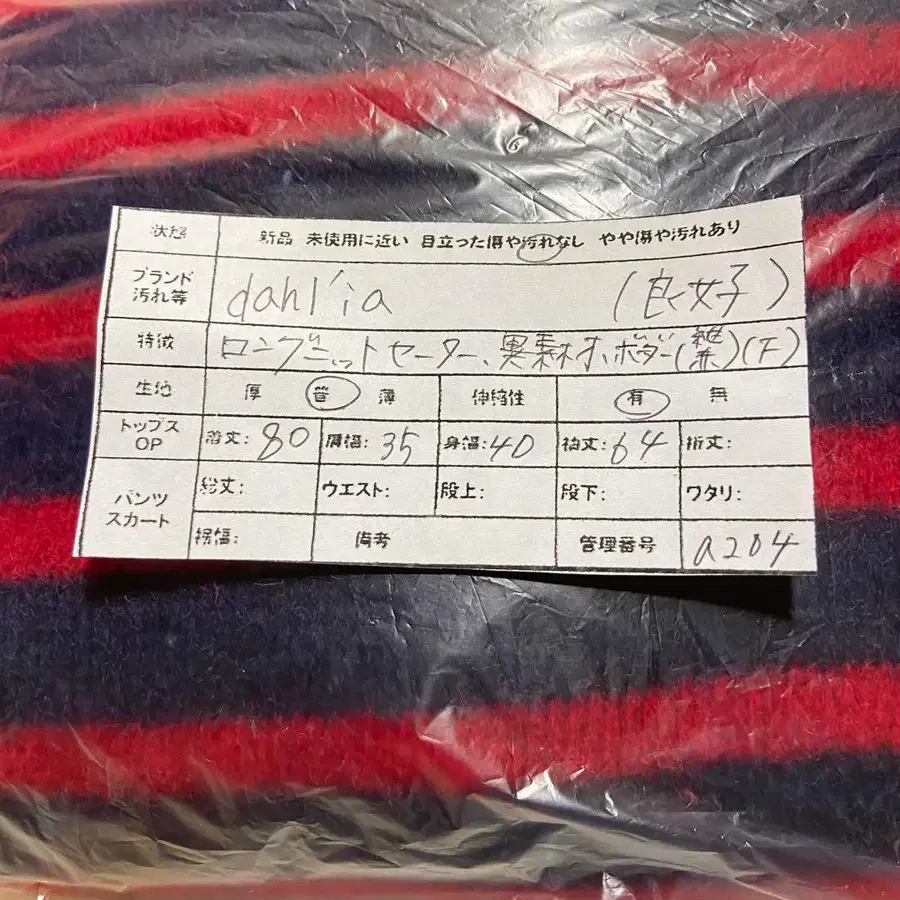 状態 新品 未使用に近い 目立った傷や汚れなし やや傷や汚れあり
ブランド 汚れ等 dahl'ia (良女子)
特徴 ロングニットセーター、 ボーダー
生地 厚 普 薄 伸縮性 有 無
トップス OP 着丈: 80 肩幅: 35 身幅: 40 袖丈: 64 裄丈:
パンツ スカート 総丈: ウエスト: 股上: 股下: ワタリ:
裾幅: 備考 管理番号 a204